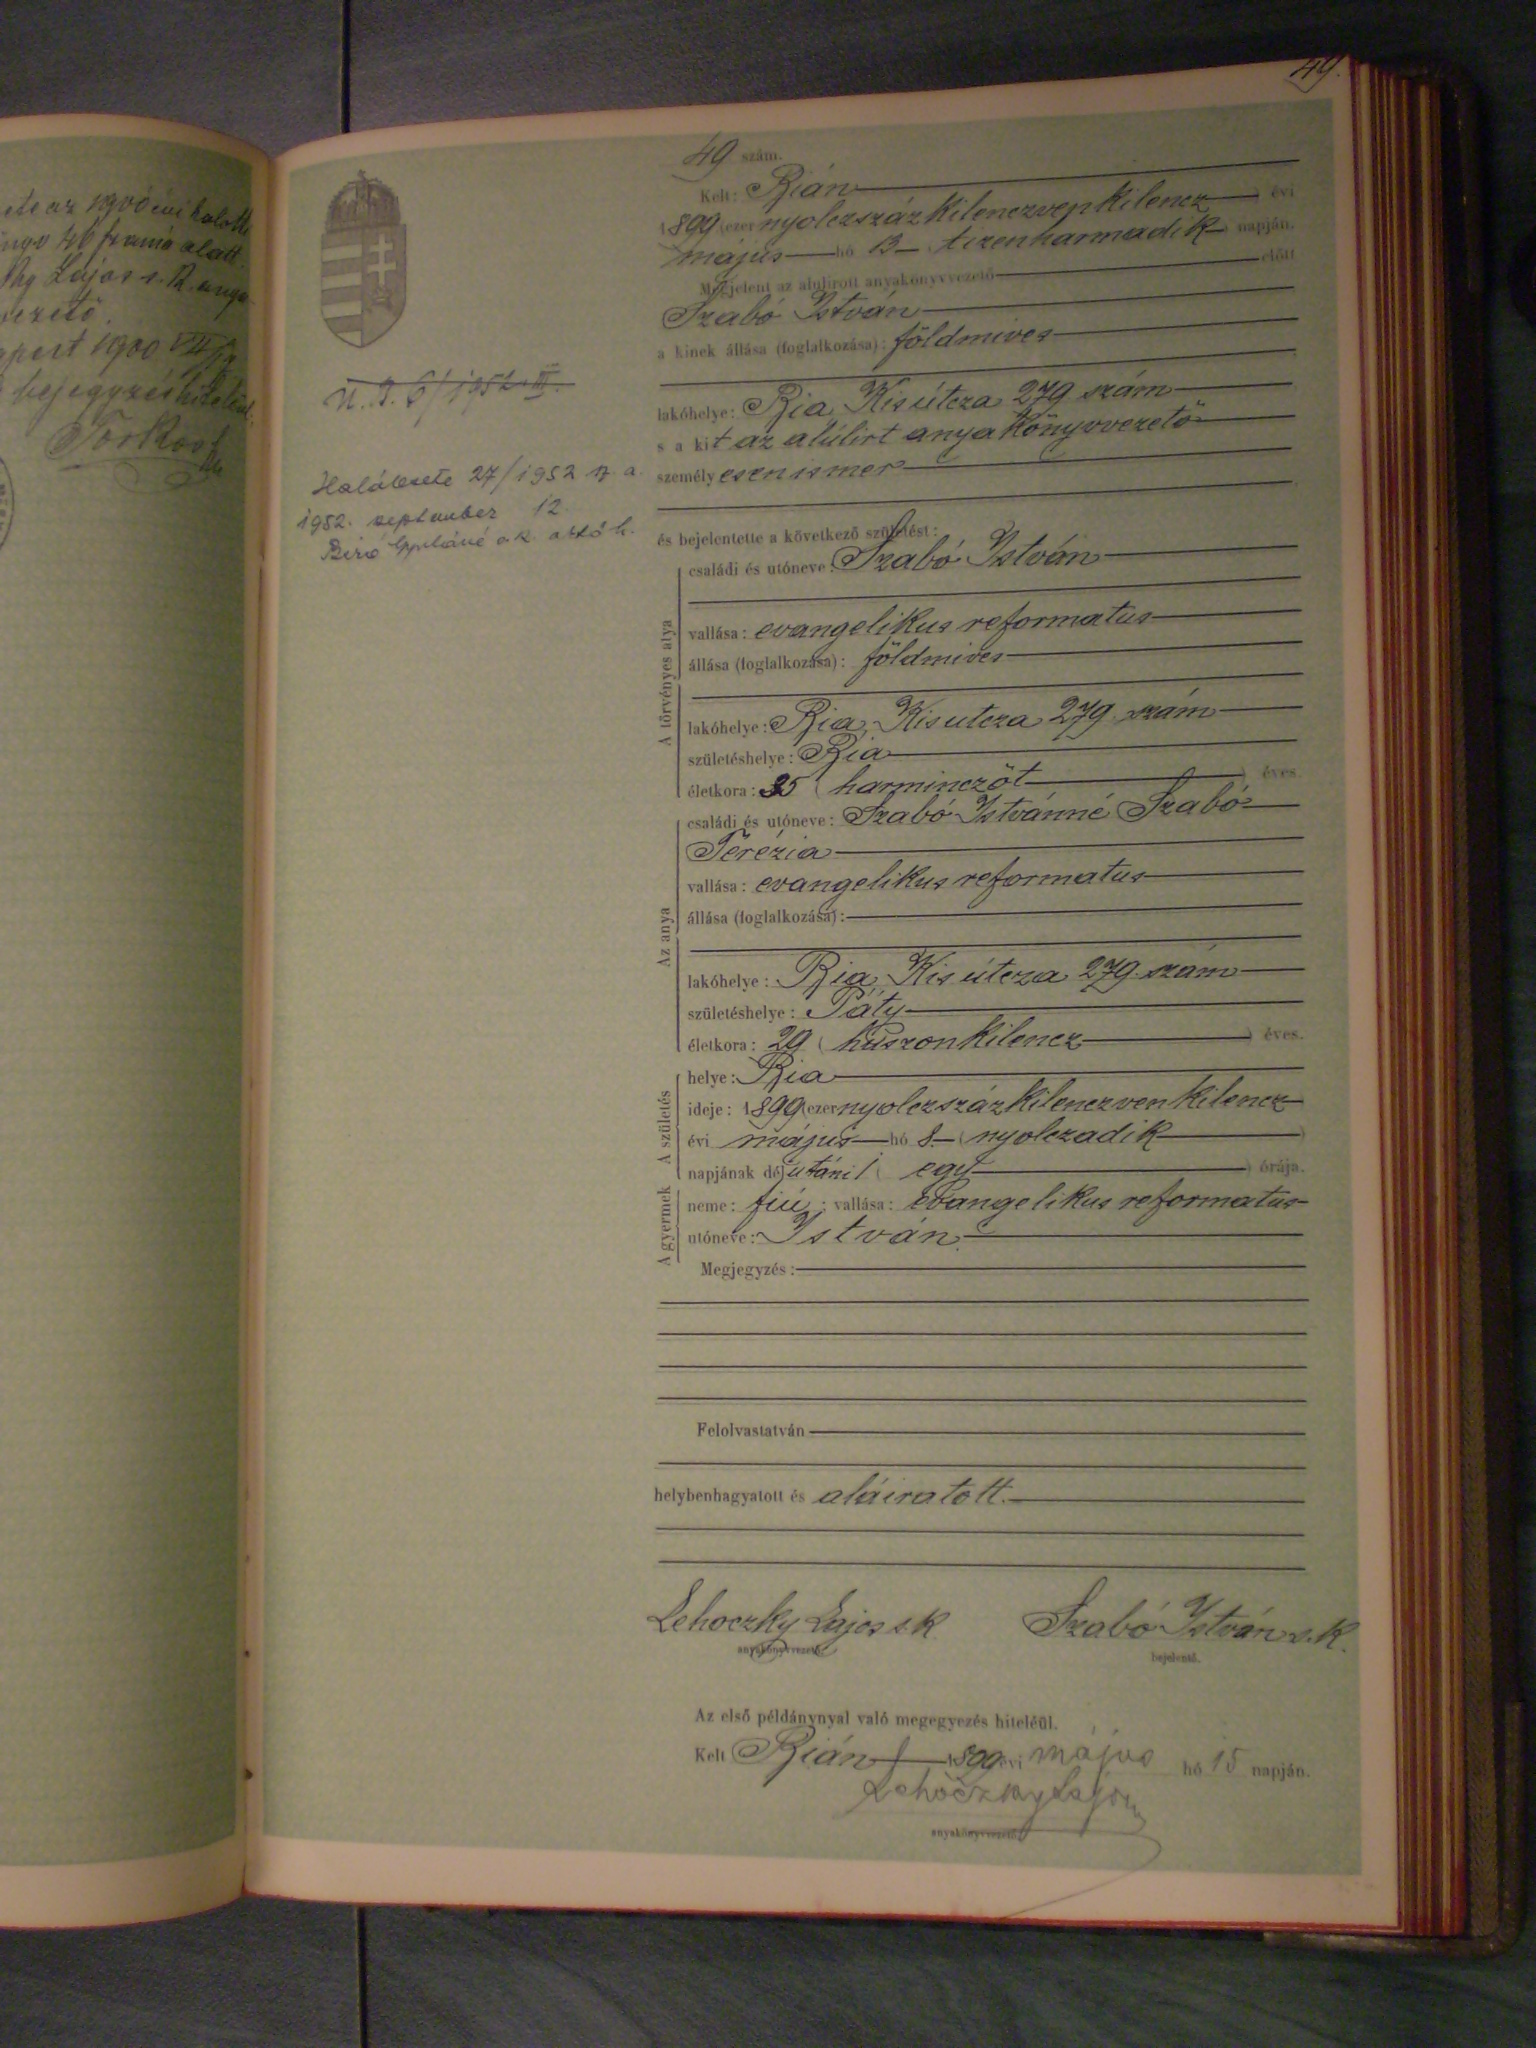 49.
ete az 1900 évi halotti
alatt.
Lajos s. k. anya-
vezető.
1900
bejegyzés hiteléül.
49 szám.
Kelt: Bián
1899 (ezer nyolczszáz kilenczven kilencz) évi
május hó 13 (tizenharmadik) napján.
Megjelent az alulirott anyakönyvvezető előtt
Szabó István
a kinek állása (foglalkozása): földmives
lakóhelye: Bia, Kis útcza 279 szám
s a kit az alúlirt anyakönyvvezető
személyesen ismer
és bejelentette a következő születést:
A törvényes atya
családi és utóneve: Szabó István
vallása: evangelikus reformatus
állása (foglalkozása): földmives
lakóhelye: Bia, Kis utcza 279 szám
születéshelye: Bia
életkora: 35 (harminczöt) éves.
Az anya
családi és utóneve: Szabó Istvánné Szabó
Terézia
vallása: evangelikus reformatus
állása (foglalkozása):
lakóhelye: Bia, Kis útcza 279. szám
születéshelye: Páty
életkora: 29 (huszonkilencz) éves.
A születés
helye: Bia
ideje: 1899 (ezer nyolczszáz kilenczven kilencz
évi május hó 8. (nyolczadik)
napjának délutáni 1 (egy) órája.
A gyermek
neme: fiú; vallása: evangelikus reformatus
utóneve: István.
Megjegyzés:
Felolvastatván
helybenhagyatott és aláiratott.
Lehoczky Lajos s. k. Szabó István s. k.
anyakönyvvezető. bejelentő.
Az első példánynyal való megegyezés hiteléül.
Kelt Bián 1899 évi május hó 15 napján.
Lehoczky Lajos
anyakönyvvezető.
6/1952 III.
Halálesete 27/1952 sz. a.
1952. september 12.
Biró